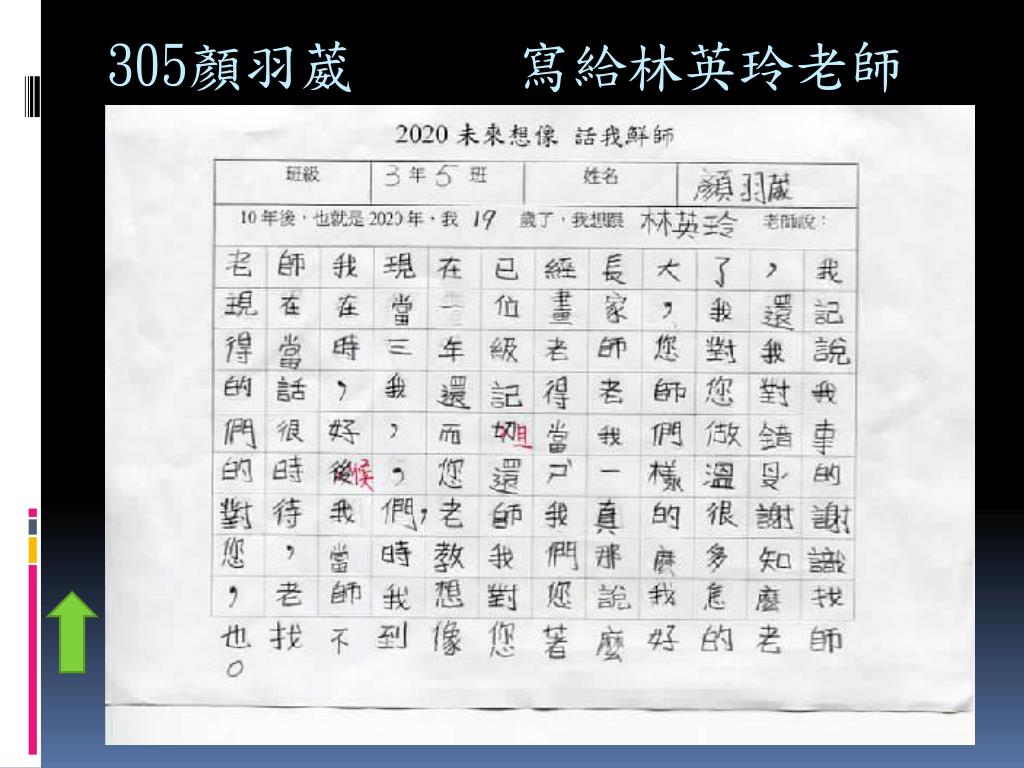 305顏羽葳 寫給林英玲老師
2020 未來想像 話我鮮師
班級 3 年 5 班 姓名 顏羽葳
10 年後，也就是 2020 年，我 19 歲了，我想跟 林英玲 老師說：
老師我現在已經長大了，我
現在在當一位畫家，我還記
得當時三年級老師您對我說
的話，我還記得老師您對我
們很好，而且當我們做錯事
的時候，您還ㄕˊ一樣溫柔的
對待我們，老師我真的很謝謝
您，當時教我們那麼多知識
，老師我想對您說我怎麼找
也找不到像您著麼好的老師
。